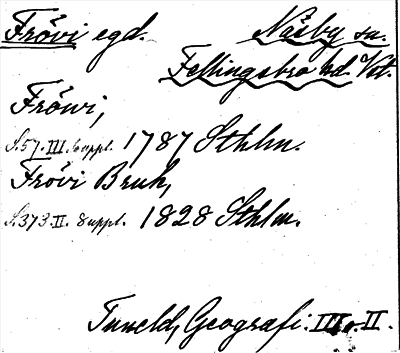 Frövi egd. Näsby sn.
Fellingsbro hd. Vst.
Fröwi,
S.57. III. Suppl. 1787 Sthlm.
Frövi Bruk,
S.373. II. Suppl. 1828 Sthlm.
Tuneld, Geografi. III o. II.